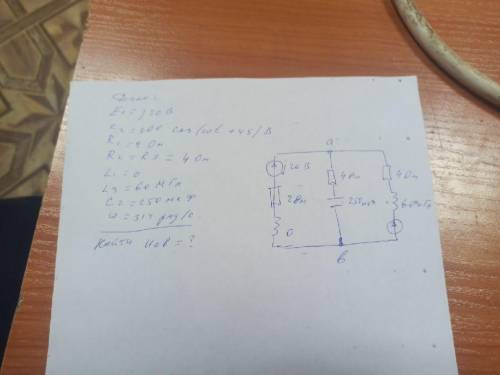 Дано:
E1 = j20 В
E2 = 200 cos(ωt + 45) В
R1 = 2 Ом
R2 = R3 = 4 Ом
L1 = 0
L3 = 60 мГн
C2 = 250 мкФ
ω = 314 рад/с
Найти Uab = ?
a
120 В
4 Ом
4 Ом
2 Ом
0
b